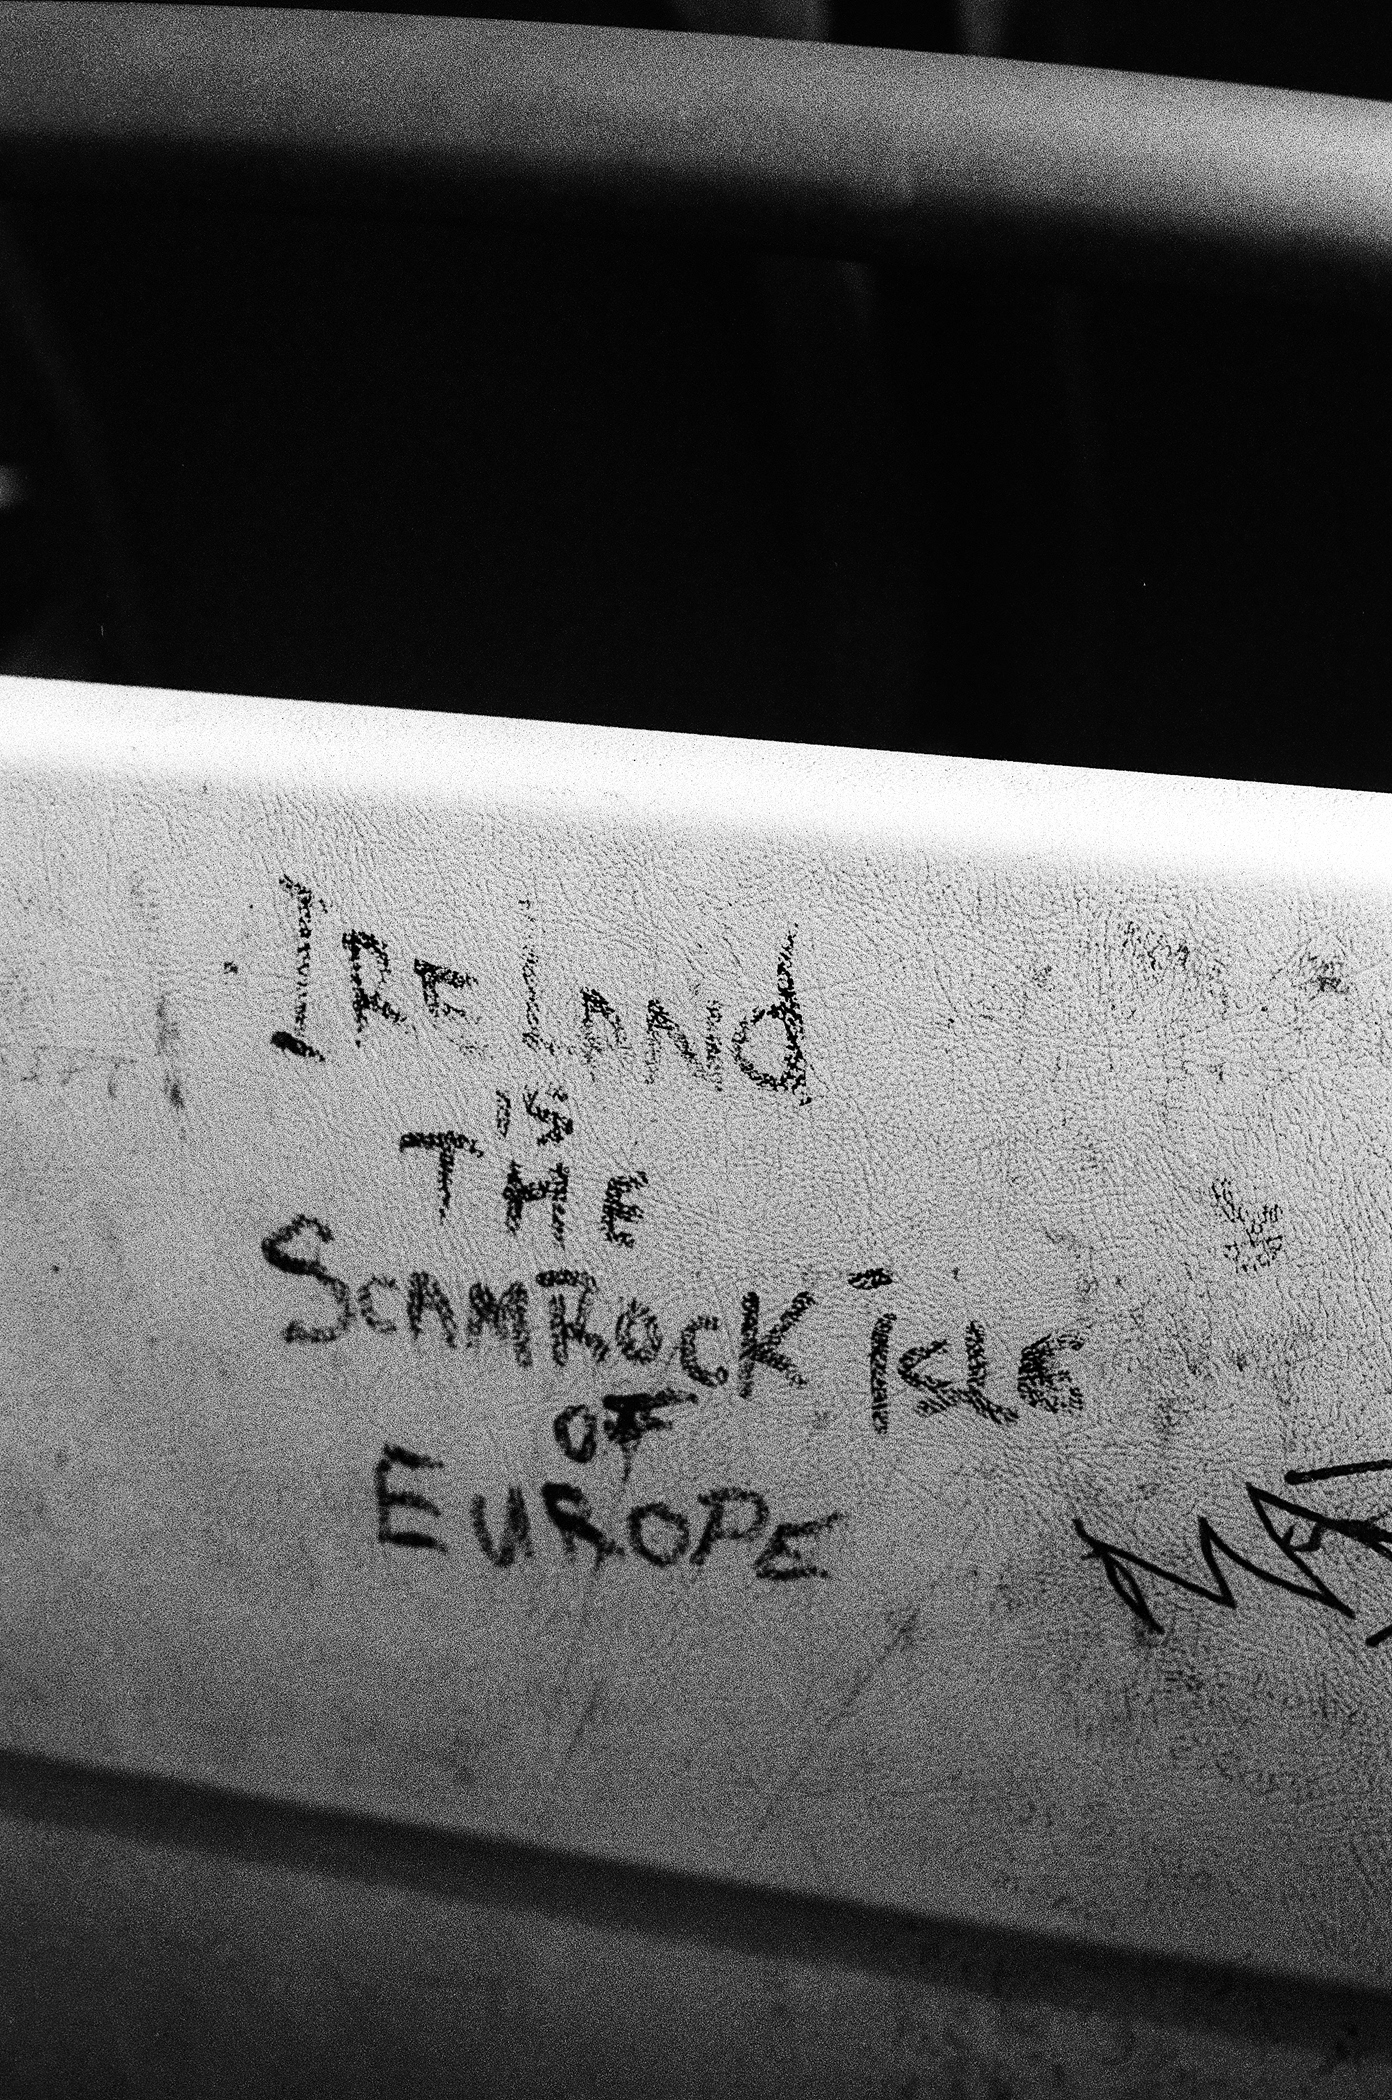 IRELANd
iS
THE
SCAMROCK ISLE
OF
EUROPE